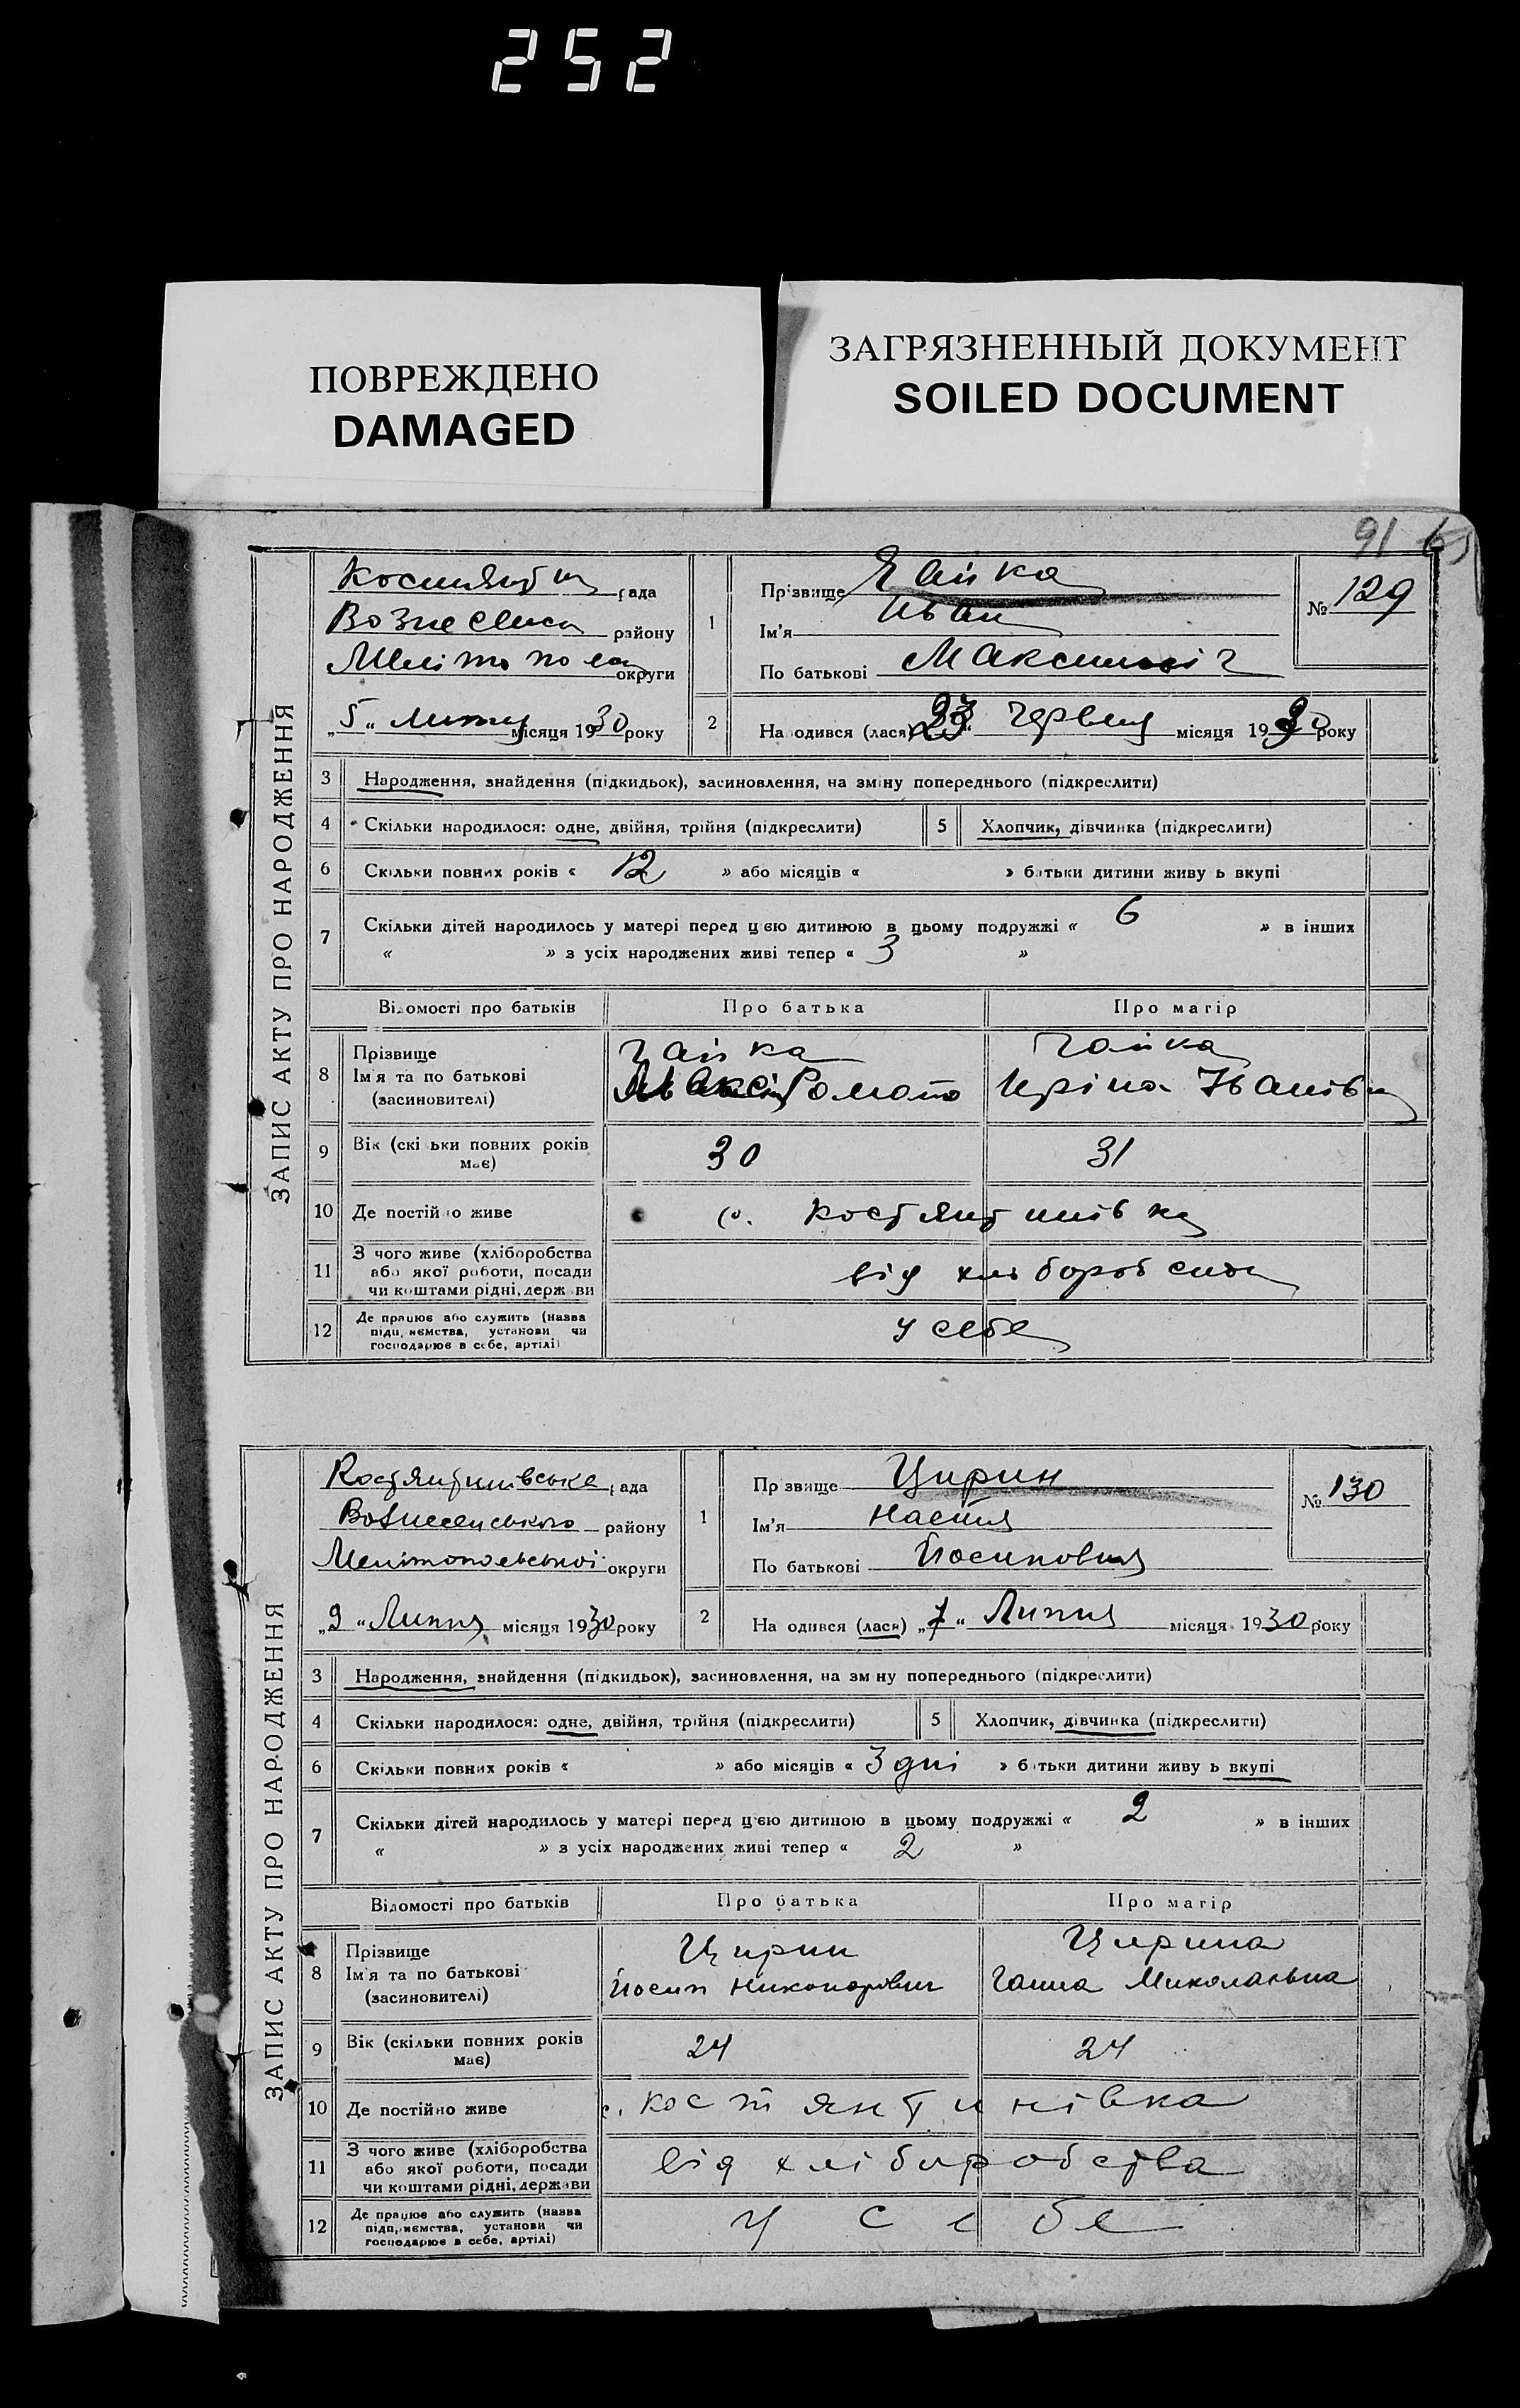 252
ПОВРЕЖДЕНО
DAMAGED
ЗАГРЯЗНЕННЫЙ ДОКУМЕНТ
SOILED DOCUMENT
91
ЗАПИС АКТУ ПРО НАРОДЖЕННЯ
рада
району
округи
1
Прізвище Чайка
Ім'я Иван
По батькові
№ 129
„5“ місяця 1930 року
2
Народився (лася) 23 червня місяця 1930 року
3 Народження, знайдення (підкидьок), засиновлення, на зміну попереднього (підкреслити)
4 Скільки народилося: одне, двійня, трійня (підкреслити)
5 Хлопчик, дівчинка (підкреслити)
6 Скільки повних років « 12 » або місяців « » батьки дитини живуть вкупі
7 Скільки дітей народилось у матері перед цією дитиною в цьому подружжі « 6 » в інших
« » з усіх народжених живі тепер « 3 »
Відомості про батьків Про батька Про матір
8 Прізвище Чайка Чайка
Ім'я та по батькові Ирина Іванівна
(засиновителі)
9 Вік (скільки повних років має) 30 31
10 Де постійно живе с. Костянтинівка
11 З чого живе (хліборобства або якої роботи, посади чи коштами рідні, держави від
12 Де працює або служить (назва підприємства, установи чи господарює в себе, артілі) у себе
ЗАПИС АКТУ ПРО НАРОДЖЕННЯ
Костянтинівська рада
Вознесенського району
Мелітопольської округи
1
Прізвище Цирин
Ім'я Настя
По батькові Йосиповна
№ 130
„9“ Липня місяця 1930 року
2
Народився (лася) „7“ Липня місяця 1930 року
3 Народження, знайдення (підкидьок), засиновлення, на зміну попереднього (підкреслити)
4 Скільки народилося: одне, двійня, трійня (підкреслити)
5 Хлопчик, дівчинка (підкреслити)
6 Скільки повних років « » або місяців « 3 дні » батьки дитини живуть вкупі
7 Скільки дітей народилось у матері перед цією дитиною в цьому подружжі « 2 » в інших
« » з усіх народжених живі тепер « 2 »
Відомості про батьків Про батька Про матір
8 Прізвище Цирин Цирина
Ім'я та по батькові Йосип Никонорович Ганна Миколаївна
(засиновителі)
9 Вік (скільки повних років має) 24 24
10 Де постійно живе с. Костянтинівка
11 З чого живе (хліборобства або якої роботи, посади чи коштами рідні, держави від хліборобства
12 Де працює або служить (назва підприємства, установи чи господарює в себе, артілі) у себе